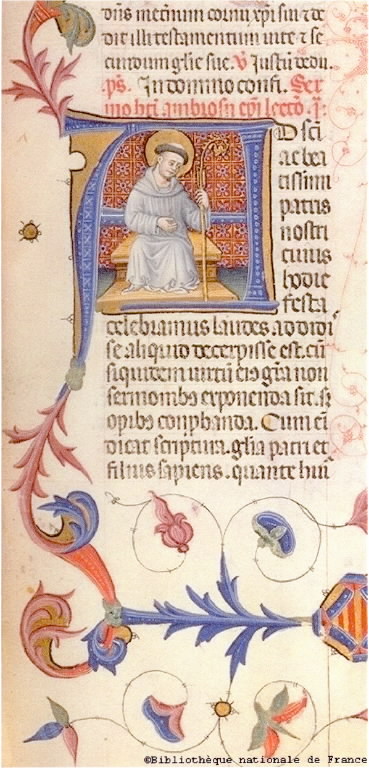 dūs mecinum coīnū xp̄i sui ⁊ de
dit illi testamentum uite ⁊ se
cūtoum glīe sue. v̄ Justū dedu.
p̄s. In domino confi. Ser
mo btī ambrosii ep̄i lectō. j.
AD sci
ac bea
tissimi
patris
nostri
cuius
hodie
festa
celebramus laudes. addidi
se aliquid decerpisse est. cū
siquidem uirtū eiꝰ gr̄a non
sermonibꝰ exponenda sit. sꝫ
opibꝰ conphanda. Cum eī
dicat scriptura. glīa patri est
filius sapiens. quante huiꝰ
©Bibliothèque nationale de France